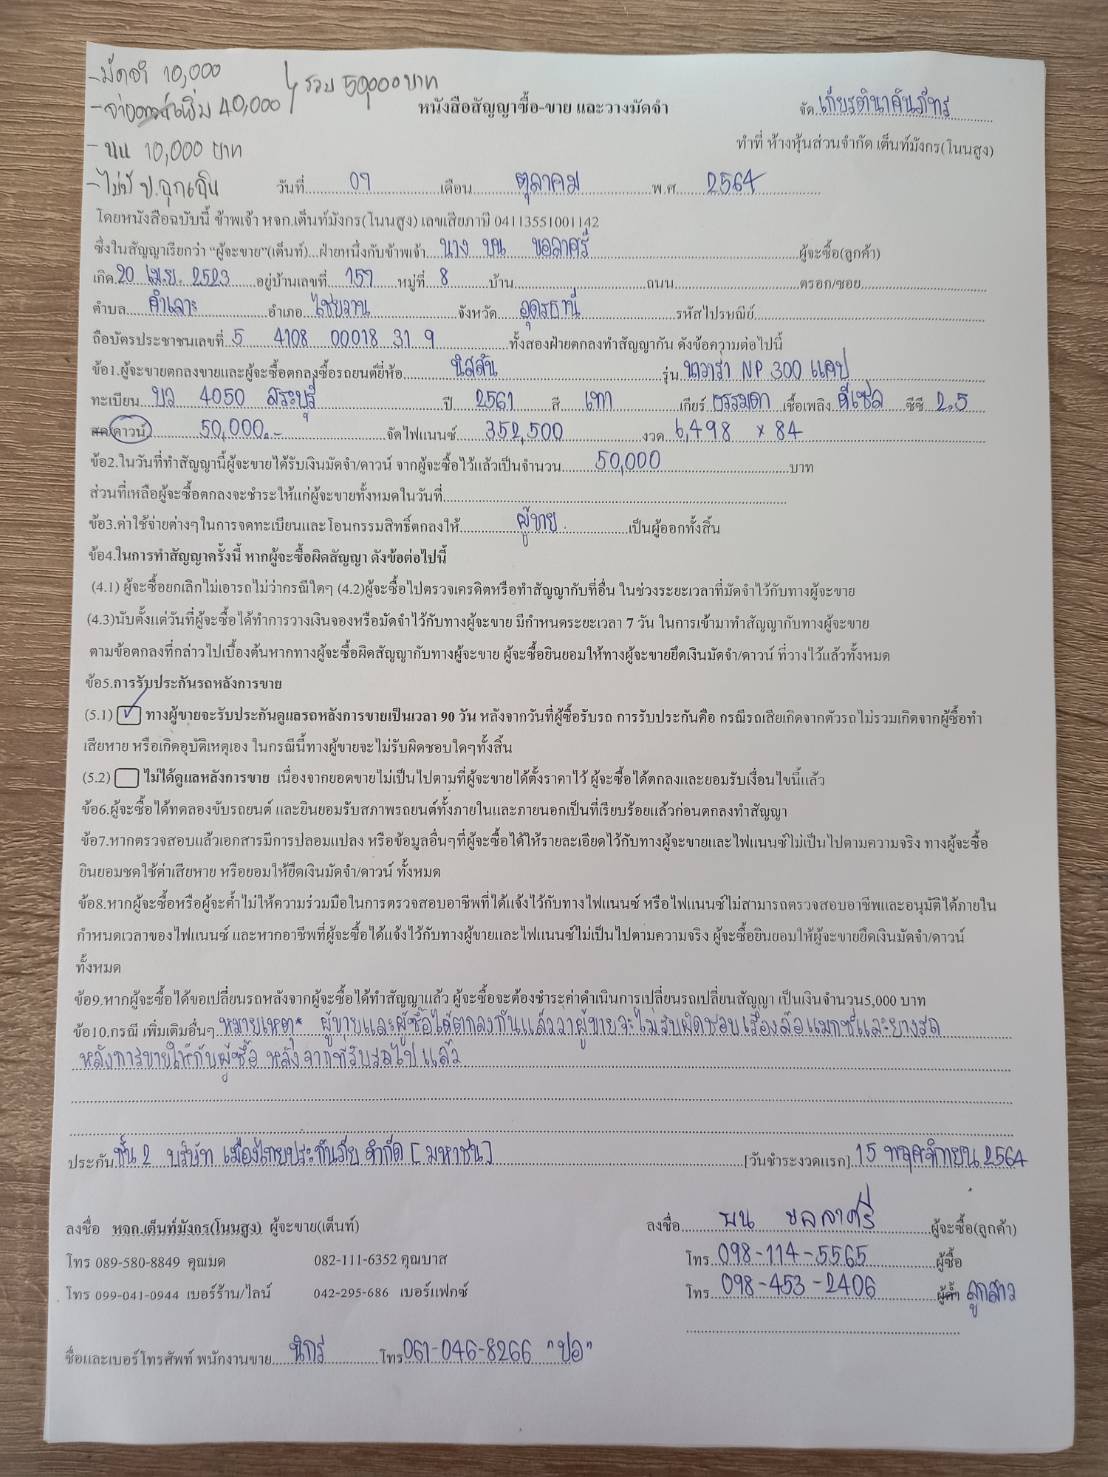 -มัดจำ 10,000
-จ่ายดาวน์เพิ่ม 40,000 } รวม 50,000 บาท
หนังสือสัญญาซื้อ-ขาย และวางมัดจำ
จัด เกียรตินาคินภัทร
- นน 10,000 บาท
ทำที่ ห้างหุ้นส่วนจำกัด เต็นท์มังกร(โนนสูง)
-ไม่มี ป.ฉุกเฉิน
วันที่ 09 เดือน ตุลาคม พ.ศ. 2564
โดยหนังสือฉบับนี้ ข้าพเจ้า หจก.เต็นท์มังกร(โนนสูง) เลขเสียภาษี 04113551001142
ซึ่งในสัญญาเรียกว่า "ผู้จะขาย"(เต็นท์)...ฝ่ายหนึ่งกับข้าพเจ้า นาง ผู้จะซื้อ(ลูกค้า)
เกิด 20 เม.ย. 2523 อยู่บ้านเลขที่ 159 หมู่ที่ 8 บ้าน ถนน ตรอก/ซอย
ตำบล คำเลาะ อำเภอ ไชยวาน จังหวัด อุดรธานี รหัสไปรษณีย์
ถือบัตรประชาชนเลขที่ 5 4108 00018 31 9 ทั้งสองฝ่ายตกลงทำสัญญากัน ดังข้อความต่อไปนี้
ข้อ1.ผู้จะขายตกลงขายและผู้จะซื้อตกลงซื้อรถยนต์ยี่ห้อ นิสสัน รุ่น นาวาร่า NP 300 แคป
ทะเบียน บว 4050 สระบุรี ปี 2561 สี เทา เกียร์ ธรรมดา เชื้อเพลิง ดีเซล ซีซี 2.5
สด/ดาวน์ 50,000.- จัดไฟแนนซ์ 352,500 งวด 6,498 x 84
ข้อ2.ในวันที่ทำสัญญานี้ผู้จะขายได้รับเงินมัดจำ/ดาวน์ จากผู้จะซื้อไว้แล้วเป็นจำนวน 50,000 บาท
ส่วนที่เหลือผู้จะซื้อตกลงจะชำระให้แก่ผู้จะขายทั้งหมดในวันที่
ข้อ3.ค่าใช้จ่ายต่างๆในการจดทะเบียนและโอนกรรมสิทธิ์ตกลงให้ ผู้ขาย เป็นผู้ออกทั้งสิ้น
ข้อ4.ในการทำสัญญาครั้งนี้ หากผู้จะซื้อผิดสัญญา ดังข้อต่อไปนี้
(4.1) ผู้จะซื้อยกเลิกไม่เอารถไม่ว่ากรณีใดๆ (4.2)ผู้จะซื้อไปตรวจเครดิตหรือทำสัญญากับที่อื่น ในช่วงระยะเวลาที่มัดจำไว้กับทางผู้จะขาย
(4.3)นับตั้งแต่วันที่ผู้จะซื้อได้ทำการวางเงินจองหรือมัดจำไว้กับทางผู้จะขาย มีกำหนดระยะเวลา 7 วัน ในการเข้ามาทำสัญญากับทางผู้จะขาย
ตามข้อตกลงที่กล่าวไปเบื้องต้นหากทางผู้จะซื้อผิดสัญญากับทางผู้จะขาย ผู้จะซื้อยินยอมให้ทางผู้จะขายยึดเงินมัดจำ/ดาวน์ ที่วางไว้แล้วทั้งหมด
ข้อ5.การรับประกันรถหลังการขาย
(5.1) ✓ ทางผู้ขายจะรับประกันดูแลรถหลังการขายเป็นเวลา 90 วัน หลังจากวันที่ผู้ซื้อรับรถ การรับประกันคือ กรณีรถเสียเกิดจากตัวรถไม่รวมเกิดจากผู้ซื้อทำ
เสียหาย หรือเกิดอุบัติเหตุเอง ในกรณีนี้ทางผู้ขายจะไม่รับผิดชอบใดๆทั้งสิ้น
(5.2) ไม่ได้ดูแลหลังการขาย เนื่องจากยอดขายไม่เป็นไปตามที่ผู้จะขายได้ตั้งราคาไว้ ผู้จะซื้อได้ตกลงและยอมรับเงื่อนไขนี้แล้ว
ข้อ6.ผู้จะซื้อได้ทดลองขับรถยนต์ และยินยอมรับสภาพรถยนต์ทั้งภายในและภายนอกเป็นที่เรียบร้อยแล้วก่อนตกลงทำสัญญา
ข้อ7.หากตรวจสอบแล้วเอกสารมีการปลอมแปลง หรือข้อมูลอื่นๆที่ผู้จะซื้อได้ให้รายละเอียดไว้กับทางผู้จะขายและไฟแนนซ์ไม่เป็นไปตามความจริง ทางผู้จะซื้อ
ยินยอมชดใช้ค่าเสียหาย หรือยอมให้ยึดเงินมัดจำ/ดาวน์ ทั้งหมด
ข้อ8.หากผู้จะซื้อหรือผู้จะค้ำไม่ให้ความร่วมมือในการตรวจสอบอาชีพที่ได้แจ้งไว้กับทางไฟแนนซ์ หรือไฟแนนซ์ไม่สามารถตรวจสอบอาชีพและอนุมัติได้ภายใน
กำหนดเวลาของไฟแนนซ์ และหากอาชีพที่ผู้จะซื้อได้แจ้งไว้กับทางผู้ขายและไฟแนนซ์ไม่เป็นไปตามความจริง ผู้จะซื้อยินยอมให้ผู้จะขายยึดเงินมัดจำ/ดาวน์
ทั้งหมด
ข้อ9.หากผู้จะซื้อได้ขอเปลี่ยนรถหลังจากผู้จะซื้อได้ทำสัญญาแล้ว ผู้จะซื้อจะต้องชำระค่าดำเนินการเปลี่ยนรถเปลี่ยนสัญญา เป็นเงินจำนวน5,000 บาท
ข้อ10.กรณี เพิ่มเติมอื่นๆ หมายเหตุ* ผู้ขายและผู้ซื้อได้ตกลงกันแล้วว่าผู้ขายจะไม่รับผิดชอบเรื่องล้อแมกซ์และยางรถ
หลังการขายให้กับผู้ซื้อ หลังจากที่รับรถไปแล้ว
ประกัน ชั้น 2 บริษัท เมืองไทยประกันภัย จำกัด [มหาชน] [วันชำระงวดแรก] 15 พฤศจิกายน 2564
ลงชื่อ หจก.เต็นท์มังกร(โนนสูง) ผู้จะขาย(เต็นท์) ลงชื่อ ผู้จะซื้อ(ลูกค้า)
โทร 089-580-8849 คุณมด 082-111-6352 คุณบาส โทร. 098-114-5565 ผู้ซื้อ
โทร 099-041-0944 เบอร์ร้าน/ไลน์ 042-295-686 เบอร์แฟกซ์ โทร. 098-453-2406 ผู้ค้ำ ลูกสาว
ชื่อและเบอร์โทรศัพท์ พนักงานขาย โทร 061-046-8266 "ปอ"